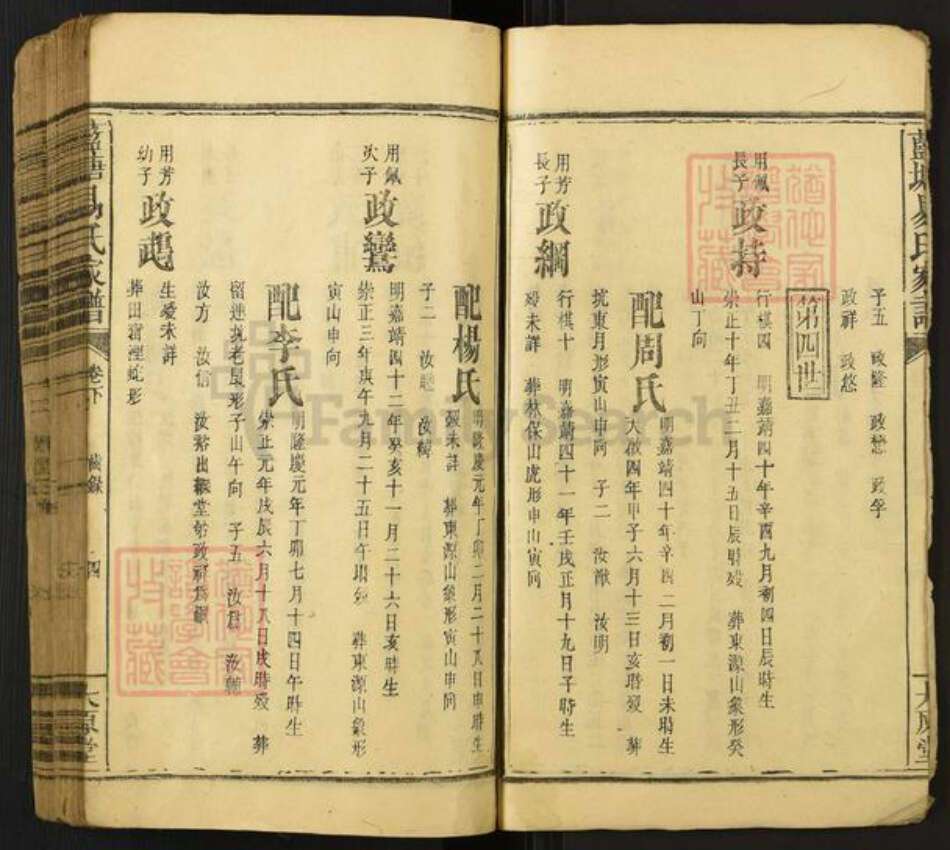 子五 政隆 政
政祥 政悠
第四世
用佩
長子
政持
行棋四 明嘉靖四十年辛酉九月初四日辰時生
崇正十年丁丑二月十五日辰時歿 葬東源山象形癸
山丁向
配周氏
明嘉靖四十年辛酉二月初一日未時生
天啟四年甲子六月十三日亥時歿 葬
坑東月形寅山申向 子二 汝猷 汝明
用芳
長子
政綱
行棋十 明嘉靖四十一年壬戌正月十九日子時生
歿未詳 葬林保山虎形申山寅向
配楊氏
明隆慶元年丁卯二月二十八日申時生
歿未詳 葬東源山象形寅山申向
子二 汝 汝
用佩
次子
政鸞
明嘉靖四十二年癸亥十一月二十六日亥時生
崇正三年庚午九月二十五日午時歿 葬東源山象形
寅山申向
配李氏
明隆慶元年丁卯七月十四日午時生
崇正元年戊辰六月十八日戌時歿 葬
留連坑老鼠形子山午向 子五 汝 汝
汝方 汝信 汝 出繼堂弟政 為嗣
用芳
幼子
政
生歿未詳
葬田 蛇形
藍塘易氏家譜
卷下
四
太原堂
FamilySearch